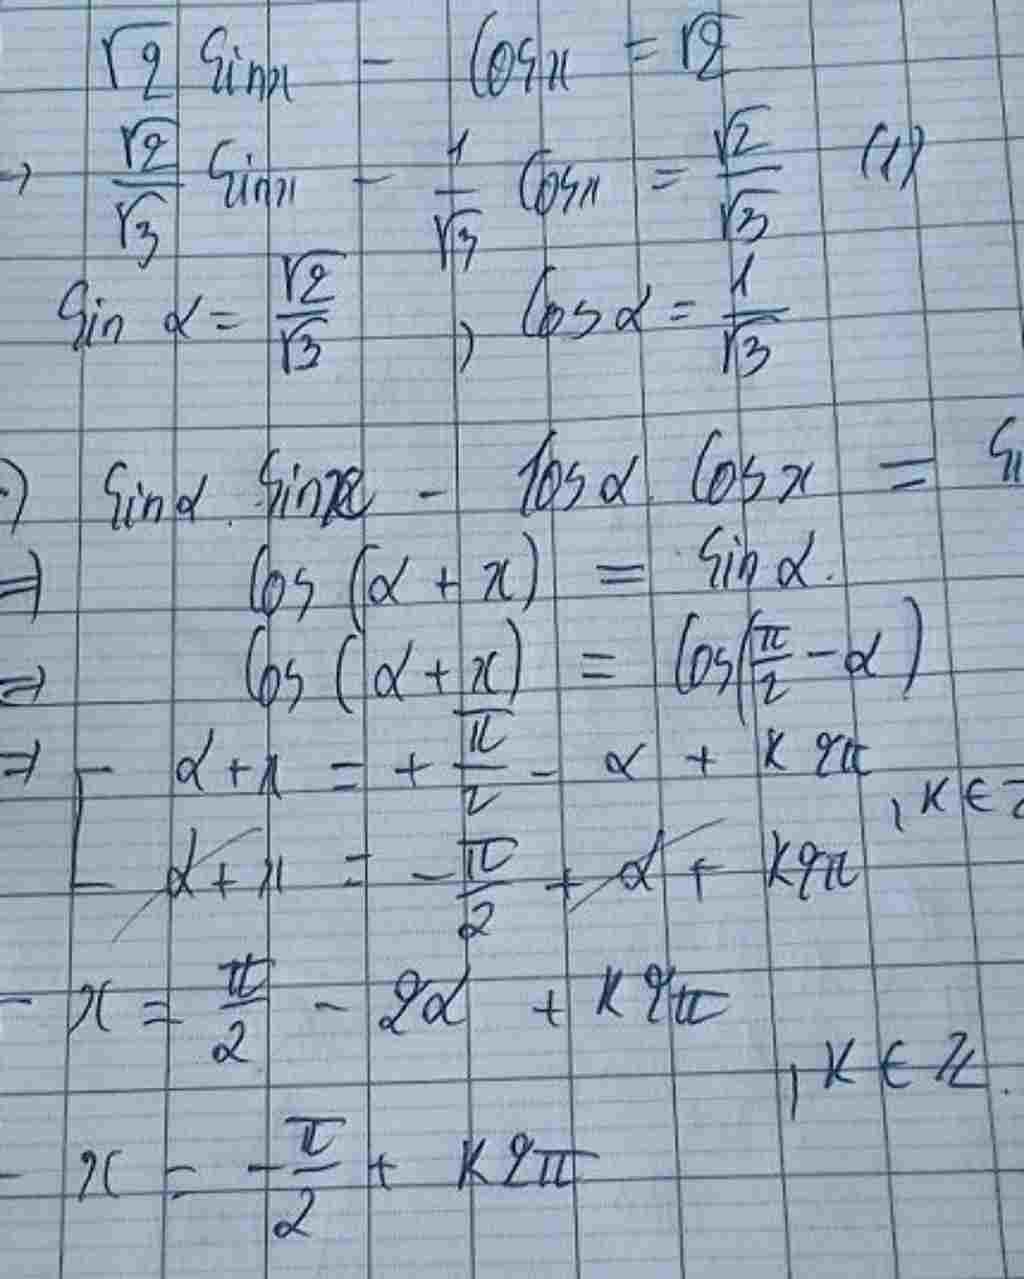 √2 Sinx - Cosx = √2
→ √2/√3 Sinx - 1/√3 Cosx = √2/√3 (1)
Sin α = √2/√3 , Cosα = 1/√3
) Sinα . Sinx - Cosα . Cosx =
⇒ Cos (α + x) = Sin α.
⇒ Cos (α + x) = Cos(π/2 - α)
⇒ [ α + x = + π/2 - α + k2π
, k ∈ Z
α + x = - π/2 + α + k2π
- x = π/2 - 2α + k2π
, k ∈ Z.
- x = - π/2 + k2π